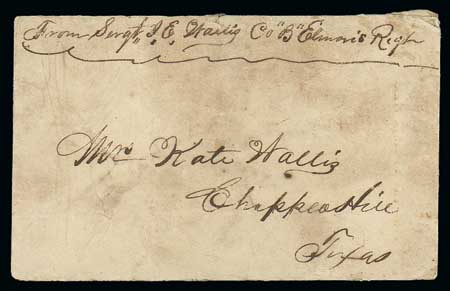 From Sergt J. E. Wallis Co "B" Elmore's Regt
Mrs Kate Wallis
Chappell Hill
Texas